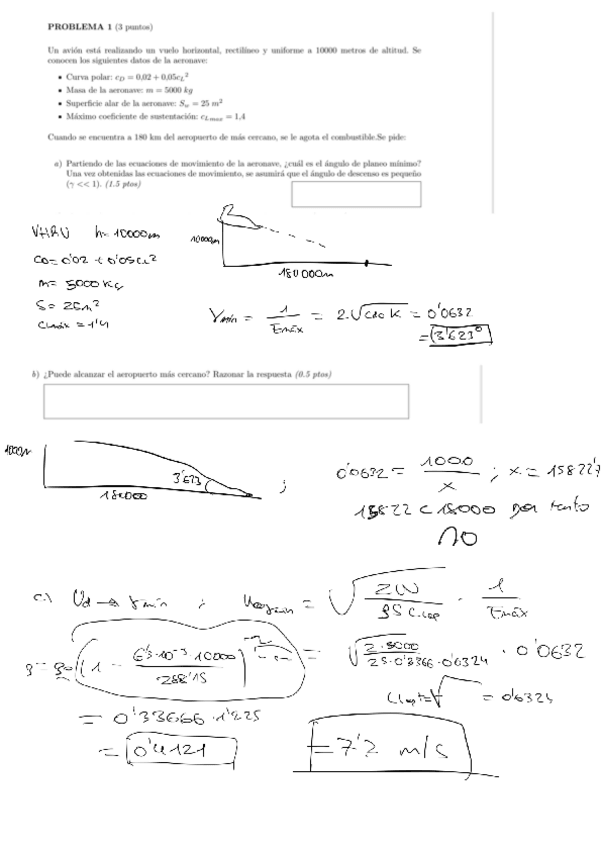 PROBLEMA 1 (3 puntos)
Un avión está realizando un vuelo horizontal, rectilíneo y uniforme a 10000 metros de altitud. Se
conocen los siguientes datos de la aeronave:
• Curva polar: c_D = 0,02 + 0,05c_L²
• Masa de la aeronave: m = 5000 kg
• Superficie alar de la aeronave: S_w = 25 m²
• Máximo coeficiente de sustentación: c_Lmax = 1,4
Cuando se encuentra a 180 km del aeropuerto de más cercano, se le agota el combustible.Se pide:
a) Partiendo de las ecuaciones de movimiento de la aeronave, ¿cuál es el ángulo de planeo mínimo?
Una vez obtenidas las ecuaciones de movimiento, se asumirá que el ángulo de descenso es pequeño
(γ << 1). (1.5 ptos)
VHRU h=10000m
10000m
CD=0'02 + 0'05CL²
180000m
m= 5000 Kg
S= 25m²
CLmáx = 1'4
γmín = 1/Emáx = 2·√CD0 K = 0'0632
= 3'623°
b) ¿Puede alcanzar el aeropuerto más cercano? Razonar la respuesta (0.5 ptos)
1000m
3'623
180000
; 0'0632 = 1000/x ; x = 15822'7
15822 < 18000 por tanto
NO
c) Ud → γmín ; = √(2W/ρS CLop) · 1/Emáx
ρ = ρ0 (1 - 6'5·10⁻³·10000/288'15) = √(2·5000/25·0'3366·0'6324) · 0'0632
CLopt=√ = 0'6324
= 0'33666·1'225
= 0'4121
= 7'2 m/s